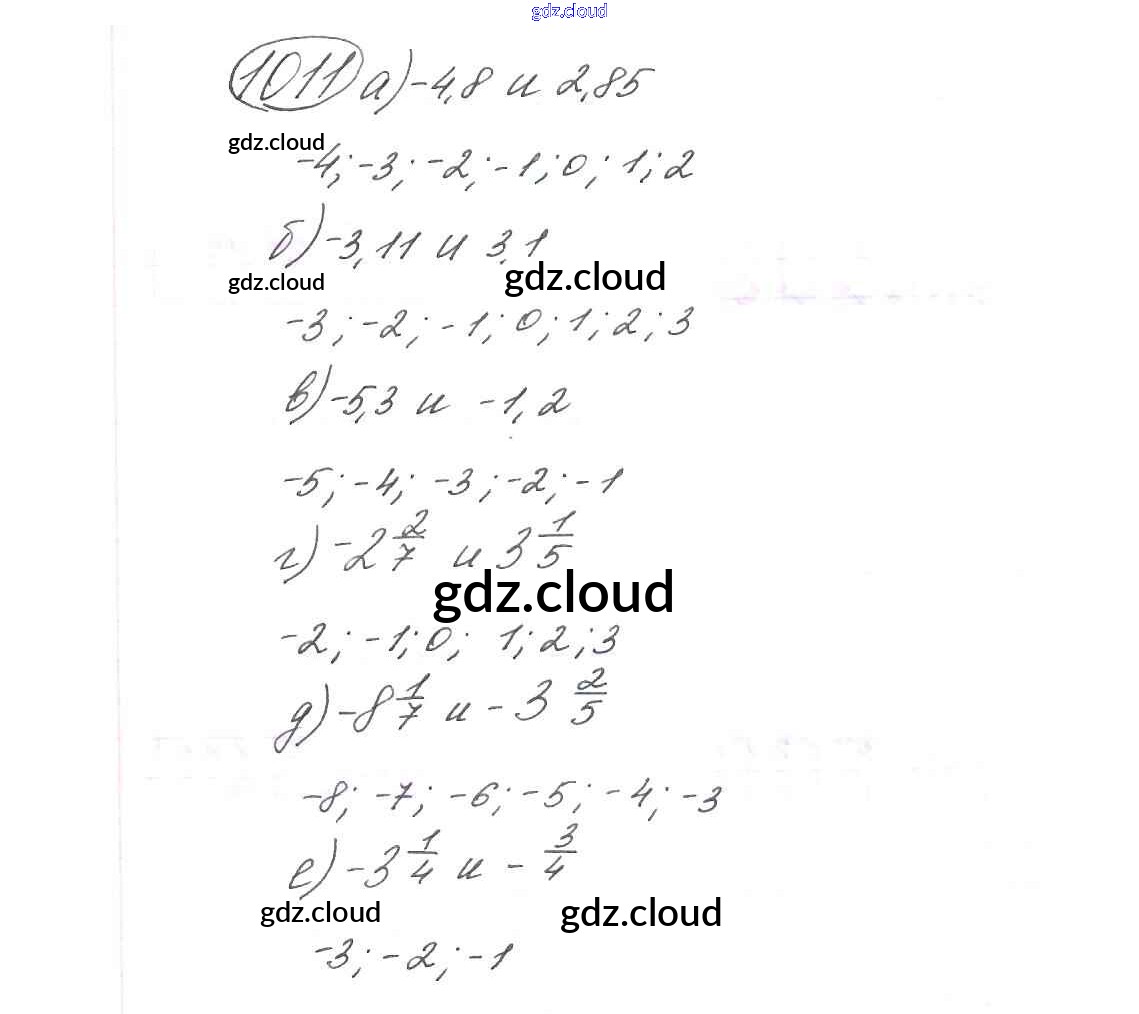 gdz.cloud
1011 а) -4,8 и 2,85
gdz.cloud
-4; -3; -2; -1; 0; 1; 2
б) -3,11 и 3,1
gdz.cloud
gdz.cloud
-3; -2; -1; 0; 1; 2; 3
в) -5,3 и -1,2
-5; -4; -3; -2; -1
г) -2 2/7 и 3 1/5
gdz.cloud
-2; -1; 0; 1; 2; 3
д) -8 1/7 и -3 2/5
-8; -7; -6; -5; -4; -3
е) -3 1/4 и - 3/4
gdz.cloud
gdz.cloud
-3; -2; -1